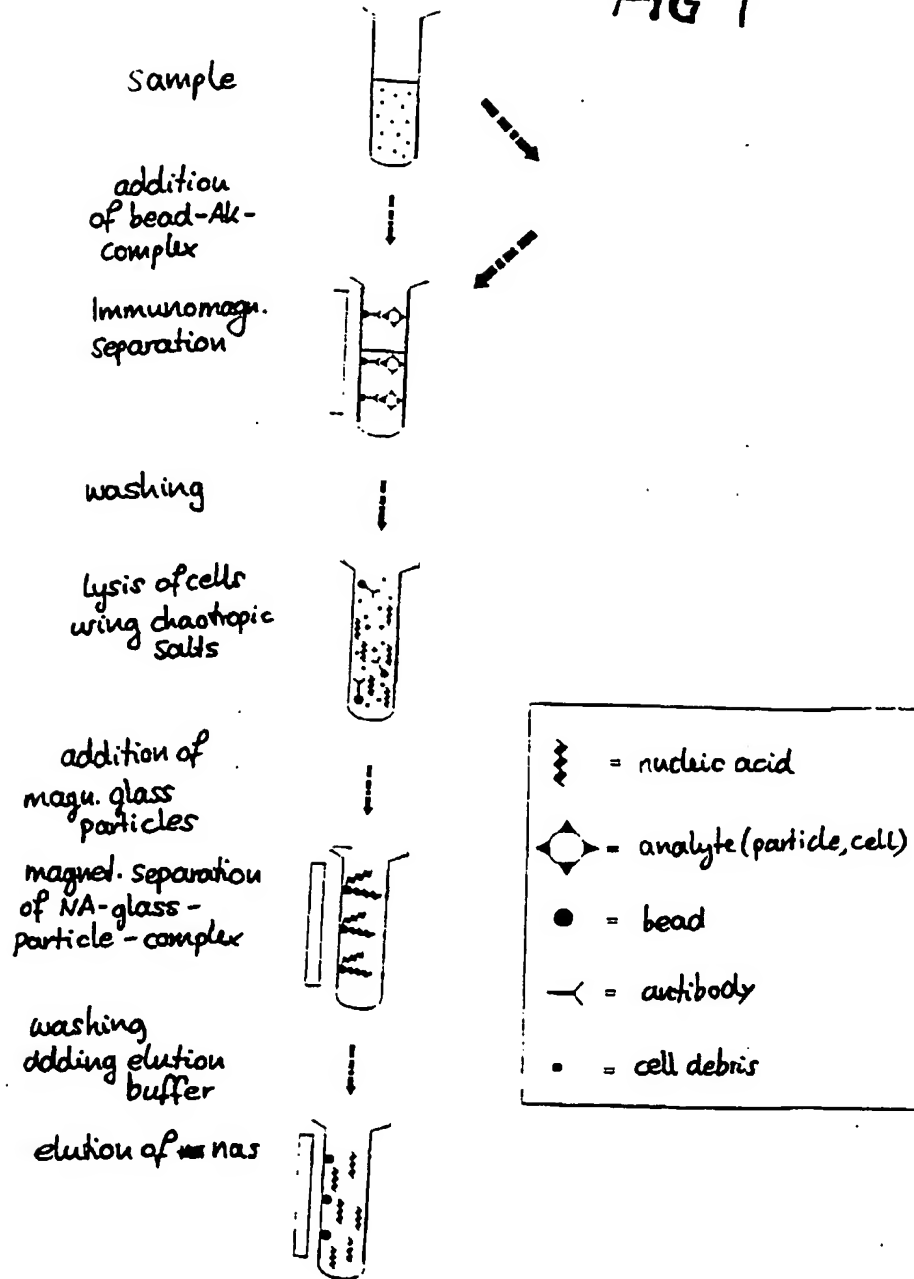 FIG 1
sample
addition
of bead-Ak-
complex
Immunomagn.
separation
washing
lysis of cells
wing chaotropic
salts
addition of
magn. glass
particles
magnet. separation
of NA-glass-
particle-complex
washing
adding elution
buffer
elution of nas
= nucleic acid
= analyte (particle, cell)
= bead
= antibody
= cell debris